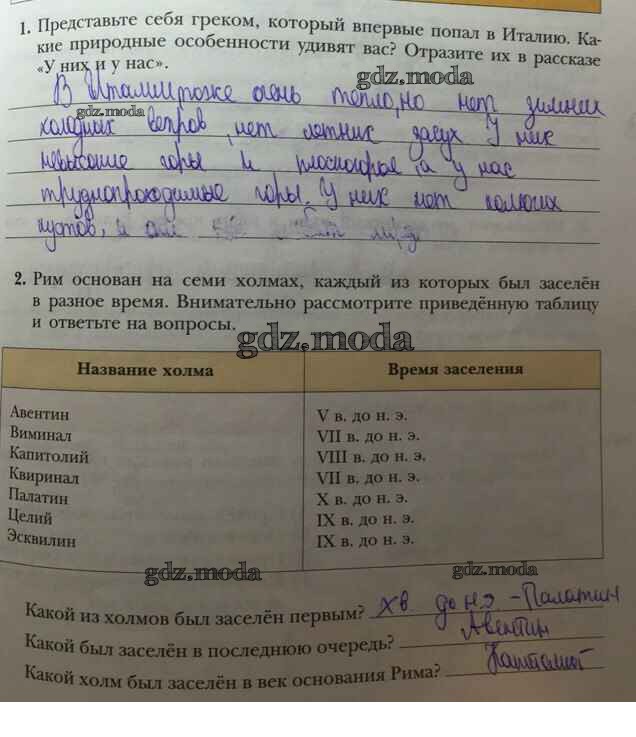 1. Представьте себя греком, который впервые попал в Италию. Ка-
кие природные особенности удивят вас? Отразите их в рассказе
«У них и у нас».
gdz.moda
В Италии тоже очень тепло, но нет зимних
gdz.moda
холодных ветров, нет летних засух. У них
невысокие горы и плоскогорье, а у нас
труднопроходимые горы. У них нет колючих
кустов, и
2. Рим основан на семи холмах, каждый из которых был заселён
в разное время. Внимательно рассмотрите приведённую таблицу
и ответьте на вопросы.
gdz.moda
Название холма Время заселения
Авентин V в. до н. э.
Виминал VII в. до н. э.
Капитолий VIII в. до н. э.
Квиринал VII в. до н. э.
Палатин X в. до н. э.
Целий IX в. до н. э.
Эсквилин IX в. до н. э.
gdz.moda gdz.moda
Какой из холмов был заселён первым? X в. до н э - Палатин
Какой был заселён в последнюю очередь? Авентин
Какой холм был заселён в век основания Рима? Капитолий